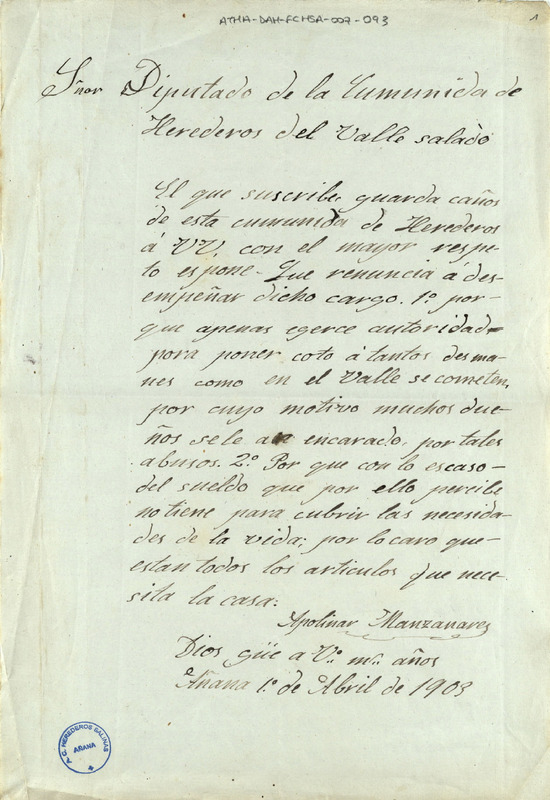 ATHA-DAH-FCHSA-007-093
1
Sñor Diputado de la Cumunida de
Herederos del Valle salado
El que suscribe, guarda caños
de esta cumunida de Herederos
á VV, con el mayor respe-
to espone- Que renuncia á des-
empeñar dicho cargo. 1º por-
que apenas egerce autoridad
para poner coto á tantos desma-
nes como en el Valle se cometen,
por cuyo motivo muchos due-
ños se le an encarado, por tales
abusos. 2º Por que con lo escaso-
del sueldo que por ello percibe
no tiene para cubrir las necesida-
des de la vida; por lo caro que-
estan todos los articulos que nece-
sita la casa:
Apolinar Manzanares
Dios güe a Vº mº años
Añana 1º de Abril de 1903
A.C. HEREDEROS SALINAS
AÑANA